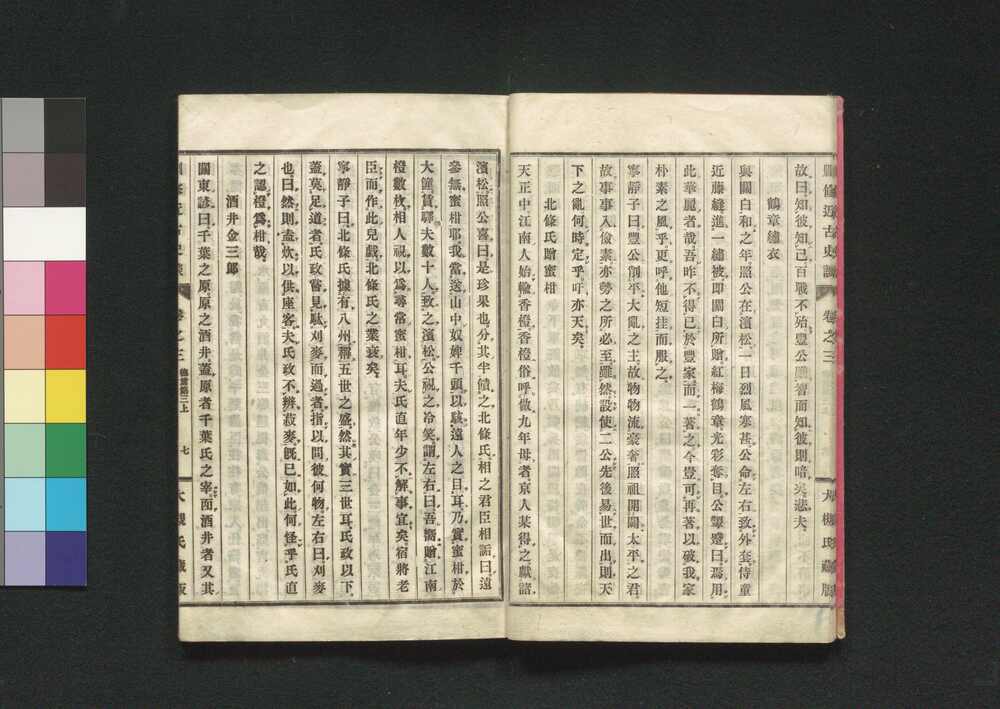 故曰知彼知己百戰不殆豐公雖智而知彼則暗矣悲夫
鶴章繡衣
與關白和之年照公在濱松一日烈風寒甚公命左右致外套侍童
近藤縫進一繡被即關白所贈紅梅鶴章光彩奪目公顰蹙曰焉用
此華麗者哉吾昨不得已於豐家而一著之今豈可再著以破我家
朴素之風乎更呼他短挂而服之
寧靜子曰豐公削平大亂之主故物物流豪奢照祖開闢太平之君
故事事入儉素亦勢之所必至雖然設使二公先後易世而出則天
下之亂何時定乎吁亦天矣
北條氏贈蜜柑
天正中江南人始輸香橙香橙俗呼做九年母者京人某得之獻諸
濱松照公喜曰是珍果也分其半饋之北條氏相之君臣相詬曰遠
參無蜜柑耶我當送山中奴婢千頭以駭遠人之目耳乃實蜜柑於
大籠賃驛夫數十人致之濱松公視之冷笑謂左右曰吾嚮贈江南
橙數枚相人視以爲尋常蜜柑耳夫氏直年少不解事宜矣宿將老
臣而作此兒戲北條氏之業衰矣
寧靜子曰北條氏據有八州稱五世之盛然其實三世耳氏政以下
蓋莫足道者氏政嘗見馱刈麥而過者指以問彼何物左右曰刈麥
也曰然則盍炊以供座客夫氏政不辨菽麥既已如此何怪乎氏直
之認橙爲柑哉
酒井金三郎
關東諺曰千葉之原原之酒井蓋原者千葉氏之宰而酒井者又其
卷之三
德富第三上
七
大槻氏藏版